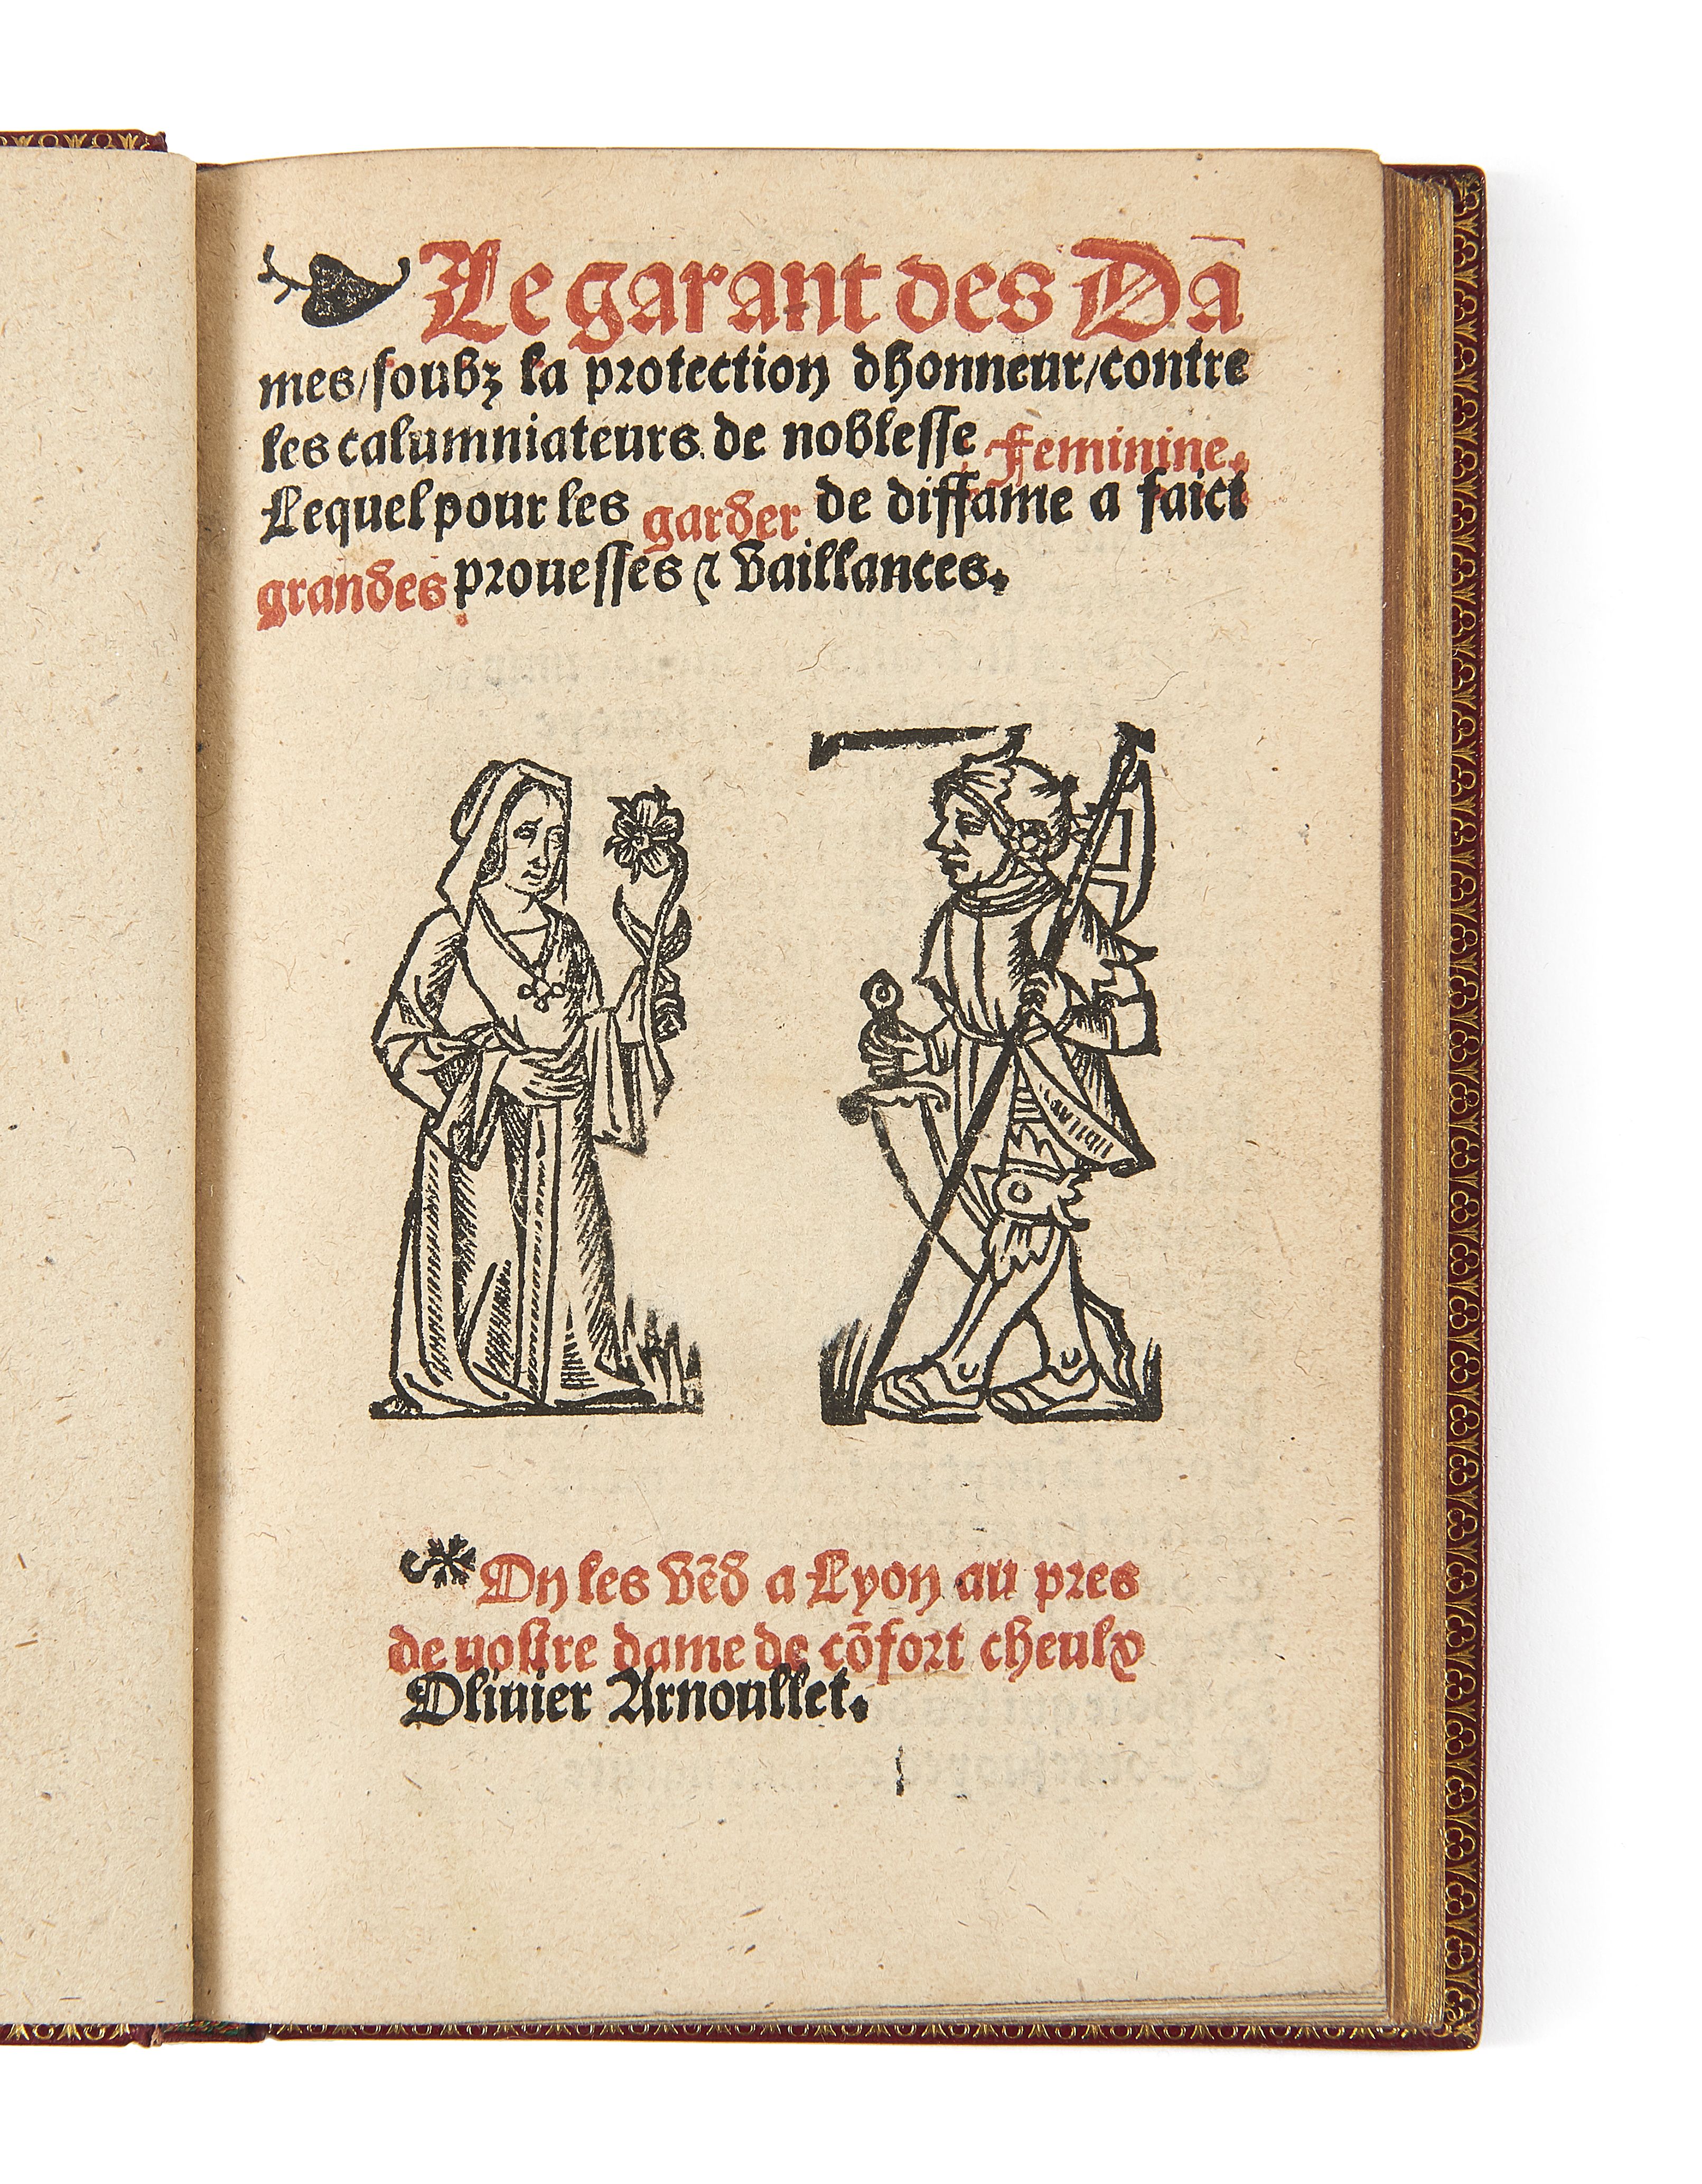 Le garant des Dā
mes/soubz la protection dhonneur/contre
les calumniateurs de noblesse feminine.
Lequel pour les garder de diffame a faict
grandes prouesses ⁊ vaillances.
On les vēd a Lyon au pres
de nostre dame de cōfort cheulx
Olivier Arnoullet.